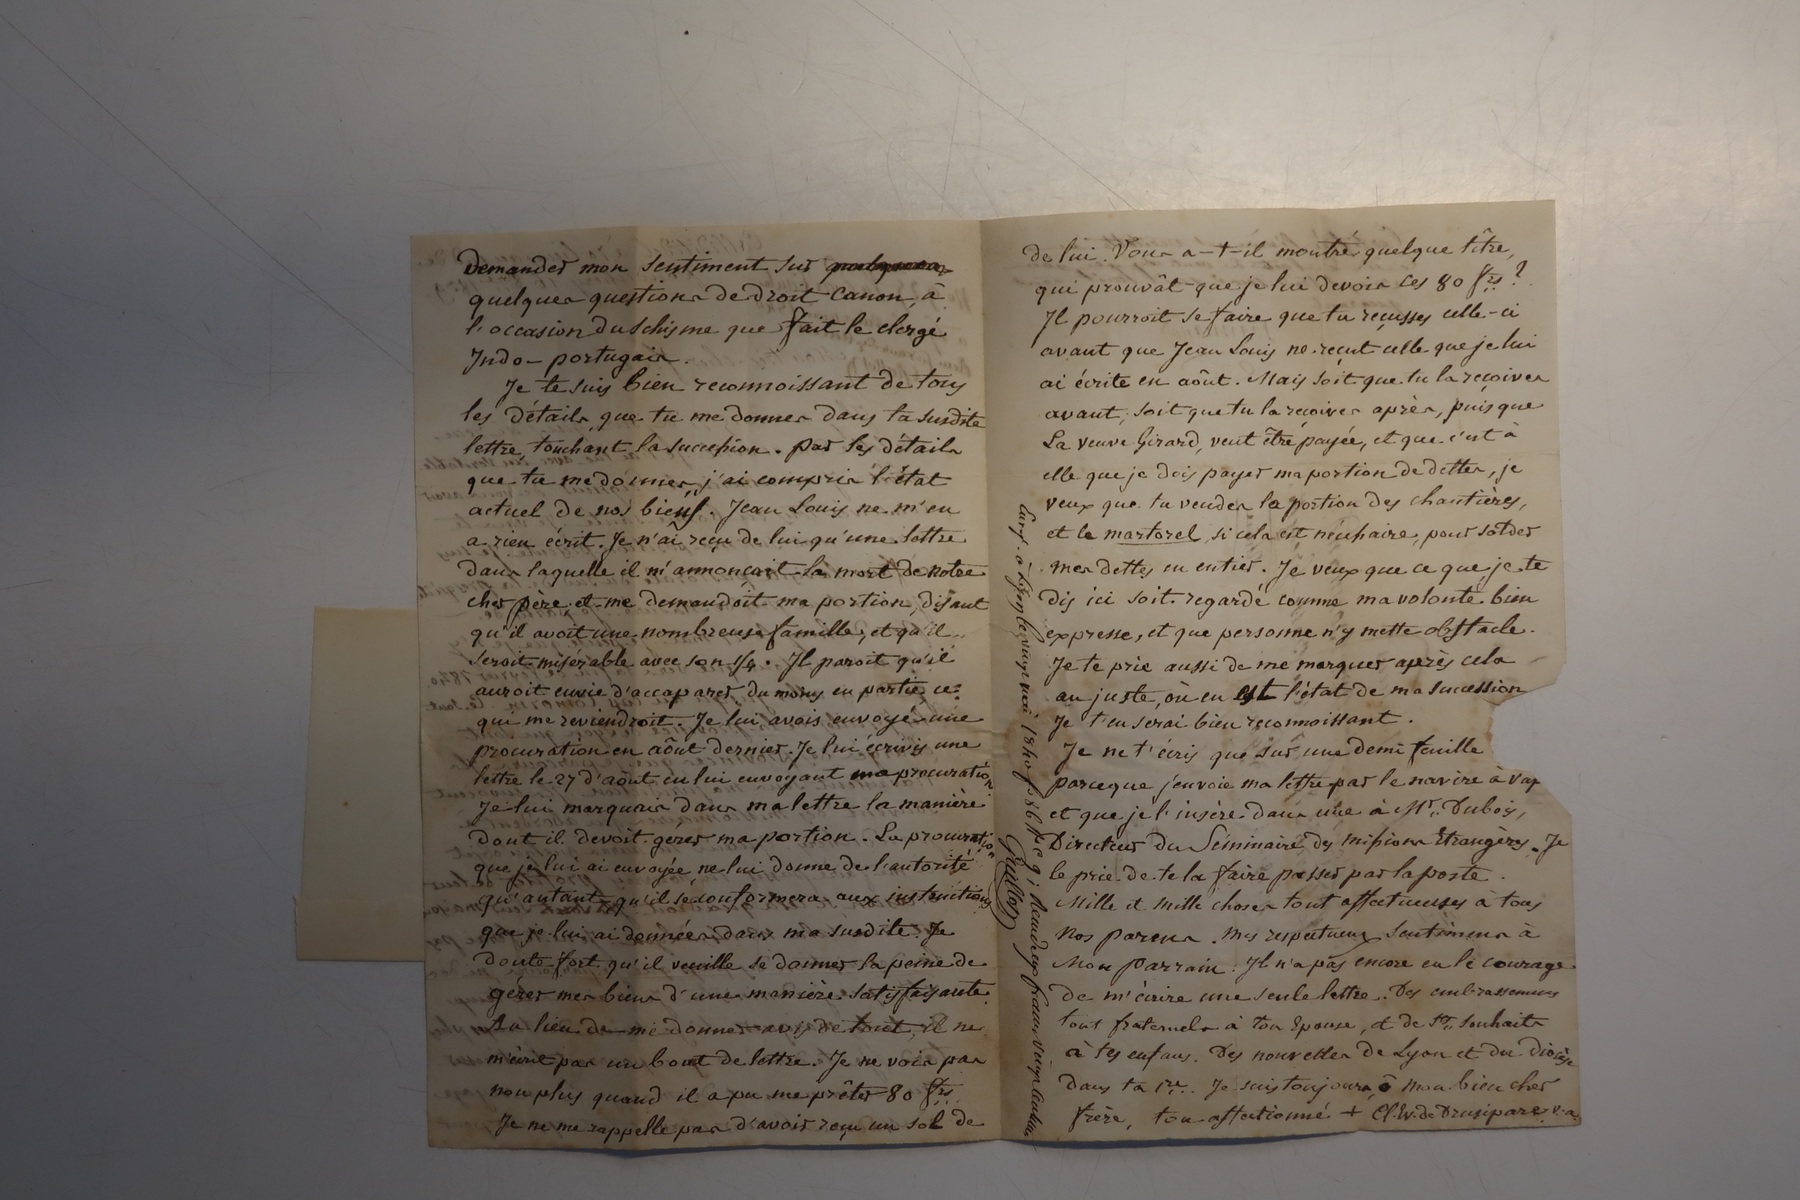 Demander mon sentiment sur quelques
quelques questions de droit canon, à
l'occasion du schisme que fait le clergé
Indo-portugais.
Je te suis bien reconnoissant de tous
les détails que tu me donnes dans ta susdite
lettre, touchant la succession. par les détails
que tu me donnes, j'ai compris l'état
actuel de nos biens. Jean Louis ne m'en
a rien écrit. Je n'ai reçu de lui qu'une lettre
dans laquelle il m'annonçait la mort de notre
cher père, et me demandoit ma portion, disant
qu'il avoit une nombreuse famille, et qu'il
seroit misérable avec son 1/4. Il paroit qu'il
auroit envie d'accaparer du moins en partie ce
qui me reviendroit. Je lui avois envoyé une
procuration en août dernier. Je lui écrivis une
lettre le 27 d'août en lui envoyant ma procuration
Je lui marquais dans ma lettre la manière
dont il devoit gérer ma portion. La procuration
que je lui ai envoyée, ne lui donne de l'autorité
qu'autant qu'il se conformera aux instructions
que je lui ai données dans ma susdite. Je
doute fort qu'il veuille se donner la peine de
gérer mes biens d'une manière satisfaisante.
Au lieu de me donner avis de tout, il ne
m'écrit pas un bout de lettre. Je ne vois pas
non plus quand il a pu me prêter 80 frs.
Je ne me rappelle pas d'avoir reçu un sol de
de lui. Vous a-t-il montré quelque titre,
qui prouvât que je lui devois ces 80 frs?
Il pourroit se faire que tu reçusses celle-ci
avant que Jean Louis ne reçut celle que je lui
ai écrite en août. Mais soit que tu la reçoives
avant, soit que tu la reçoives après, puisque
La veuve Girard, veut être payée, et que c'est à
elle que je dois payer ma portion de dettes, je
veux que tu vendes la portion des chantières,
et le martorel, si cela est nécessaire, pour solder
mes dettes en entier. Je veux que ce que je te
dis ici soit regardé comme ma volonté bien
expresse, et que personne n'y mette obstacle.
Je te prie aussi de me marquer après cela
au juste, où en est l'état de ma succession
Je t'en serai bien reconnoissant.
Je ne t'écris que sur une demi feuille
parceque j'envoie ma lettre par le navire à vap
et que je l'insère dans une à Mr. Dubois,
Directeur du Séminaire des missions Etrangères. Je
le prie de te la faire passer par la poste.
Mille et mille choses tout affectueuses à tous
nos parens. mes respectueux sentimens à
Mon parrain. Il n'a pas encore eu le courage
de m'écrire une seule lettre. Des embrassemens
tout fraternels à ton Epouse, et de Sts. souhaits
à tes enfans. Des nouvelles de Lyon et du diocèse
dans ta 1re. Je suis toujours, ô mon bien cher
frère, ton affectionné + Cl. Ev. de Drusipare v.a.
à Lyon le
1840 f. 86